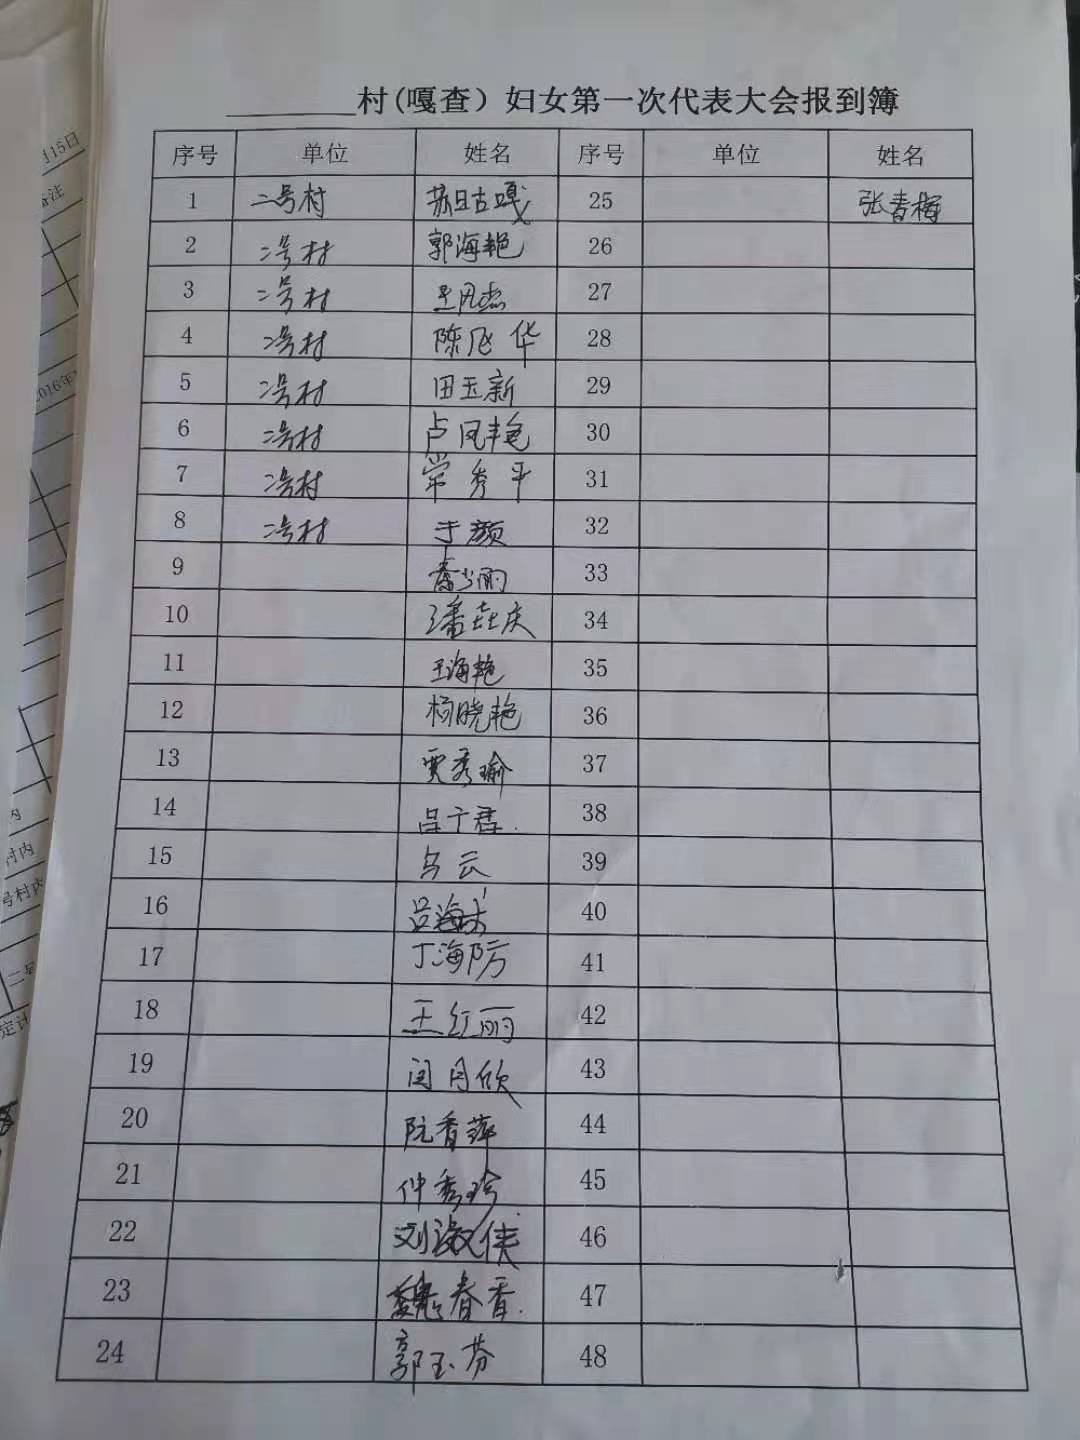 村(嘎查）妇女第一次代表大会报到簿
序号 单位 姓名 序号 单位 姓名
1 二号村 苏日古嘎 25 张春梅
2 二号村 郭海艳 26
3 二号村 王凤杰 27
4 二号村 陈凤华 28
5 二号村 田玉新 29
6 二号村 卢凤艳 30
7 二号村 常秀平 31
8 二号村 于颜 32
9 33
10 潘喜庆 34
11 王海艳 35
12 杨晓艳 36
13 贾秀瑜 37
14 吕千君 38
15 乌云 39
16 吕海 40
17 丁海 41
18 王红丽 42
19 闫月欣 43
20 阮香萍 44
21 仲秀珍 45
22 刘淑侠 46
23 魏春香 47
24 郭玉芬 48
月15日
备注
2016年
内
村内
号村内
二号
定计